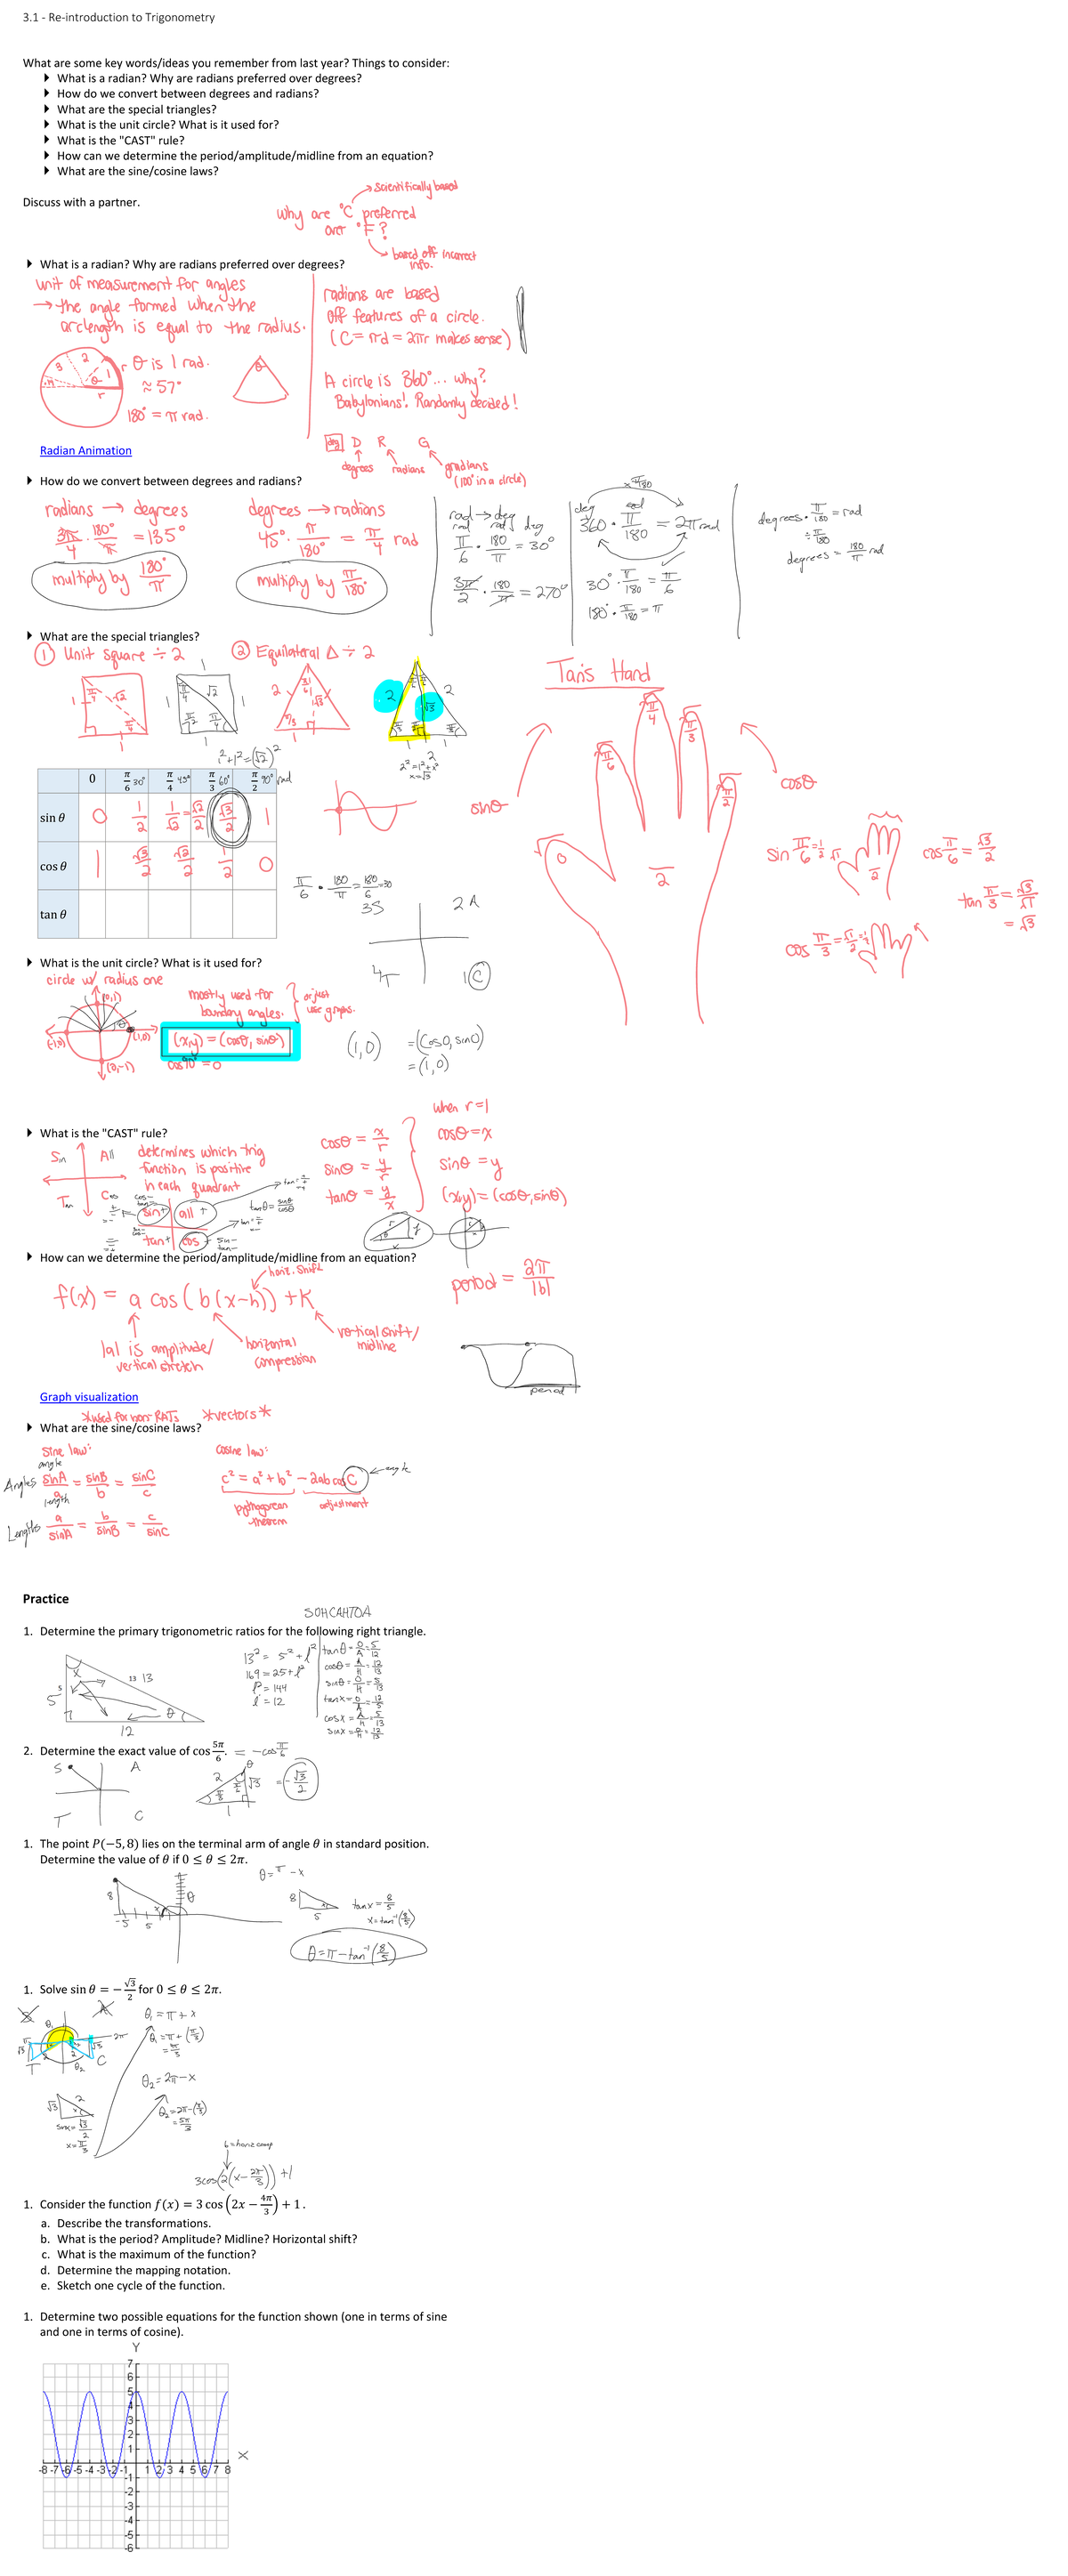 3.1 - Re-introduction to Trigonometry
What are some key words/ideas you remember from last year? Things to consider:
What is a radian? Why are radians preferred over degrees?
How do we convert between degrees and radians?
What are the special triangles?
What is the unit circle? What is it used for?
What is the "CAST" rule?
How can we determine the period/amplitude/midline from an equation?
What are the sine/cosine laws?
Discuss with a partner.
scientifically based
why are °C preferred
over °F?
based off incorrect
info.
What is a radian? Why are radians preferred over degrees?
unit of measurement for angles
→ the angle formed when the
arclength is equal to the radius.
θ is 1 rad.
≈ 57°
180° = π rad.
radians are based
off features of a circle.
(C = πd = 2πr makes sense)
A circle is 360°... why?
Babylonians! Randomly decided!
Radian Animation
deg D R G
degrees radians gradians
(100° in a circle)
How do we convert between degrees and radians?
radians → degrees
3π/4 · 180°/π = 135°
multiply by 180°/π
degrees → radians
45° · π/180° = π/4 rad
multiply by π/180°
rad → deg
π/6 · 180/π = 30°
3π/2 · 180/π = 270°
360 · π/180 = 2π rad
30° · π/180 = π/6
180° · π/180 = π
degrees · π/180 = rad
÷ π/180
degrees = 180/π rad
What are the special triangles?
① Unit square ÷ 2
② Equilateral Δ ÷ 2
1² + 1² = (√2)²
2² = 1² + x²
x = √3
Tan's Hand
sinθ
cosθ
0 π/6 30° π/4 45° π/3 60° π/2 90° rad
sin θ 0 1/2 1/√2 = √2/2 √3/2 1
cos θ 1 √3/2 √2/2 1/2 0
tan θ
π/6 · 180/π = 180/6 = 30
3S 2A
4T 1C
sin π/6 = 1/2
cos π/6 = √3/2
tan π/3 = √3/√1
= √3
cos π/3 = √1/2 = 1/2
What is the unit circle? What is it used for?
circle w/ radius one
(0,1)
(-1,0)
(1,0)
(0,-1)
mostly used for
boundary angles.
or just
use graphs.
(x,y) = (cosθ, sinθ)
cos90° = 0
(1,0) = (cos0, sin0)
= (1,0)
What is the "CAST" rule?
Sin All
Tan Cos
determines which trig
function is positive
in each quadrant
sin+ all+
tan+ cos+
tanθ = sinθ/cosθ
cosθ = x/r
sinθ = y/r
tanθ = y/x
when r=1
cosθ = x
sinθ = y
(x,y) = (cosθ, sinθ)
How can we determine the period/amplitude/midline from an equation?
horiz. shift
f(x) = a cos(b(x-h)) + K
|a| is amplitude/
vertical stretch
horizontal
compression
vertical shift/
midline
period = 2π/|b|
period
Graph visualization
*used for non-RATs *vectors*
What are the sine/cosine laws?
Sine law:
angle
Angles sinA/a = sinB/b = sinC/c
length
Lengths a/sinA = b/sinB = c/sinC
Cosine law:
c² = a² + b² - 2ab cos C
angle
pythagorean
theorem
adjustment
Practice
SOHCAHTOA
1. Determine the primary trigonometric ratios for the following right triangle.
5 13 13
5
12
x
θ
13² = 5² + l²
169 = 25 + l²
l² = 144
l = 12
tanθ = O/A = 5/12
cosθ = A/H = 12/13
sinθ = O/H = 5/13
tanx = O/A = 12/5
cosx = A/H = 5/13
sinx = O/H = 12/13
2. Determine the exact value of cos 5π/6. = -cos π/6
S A
T C
= -√3/2
1. The point P(−5, 8) lies on the terminal arm of angle θ in standard position.
Determine the value of θ if 0 ≤ θ ≤ 2π.
θ = π - x
tanx = 8/5
x = tan⁻¹(8/5)
θ = π - tan⁻¹(8/5)
1. Solve sin θ = −√3/2 for 0 ≤ θ ≤ 2π.
θ₁ = π + x
θ₂ = 2π - x
θ₂ = 2π - (π/3)
= 5π/3
sinx = √3/2
x = π/3
b = horiz comp
3cos(2(x - 2π/3)) + 1
1. Consider the function f(x) = 3 cos (2x − 4π/3) + 1.
a. Describe the transformations.
b. What is the period? Amplitude? Midline? Horizontal shift?
c. What is the maximum of the function?
d. Determine the mapping notation.
e. Sketch one cycle of the function.
1. Determine two possible equations for the function shown (one in terms of sine
and one in terms of cosine).
Y
7
6
5
4
3
2
1
-8 -7 -6 -5 -4 -3 -2 -1 1 2 3 4 5 6 7 8
X
-1
-2
-3
-4
-5
-6